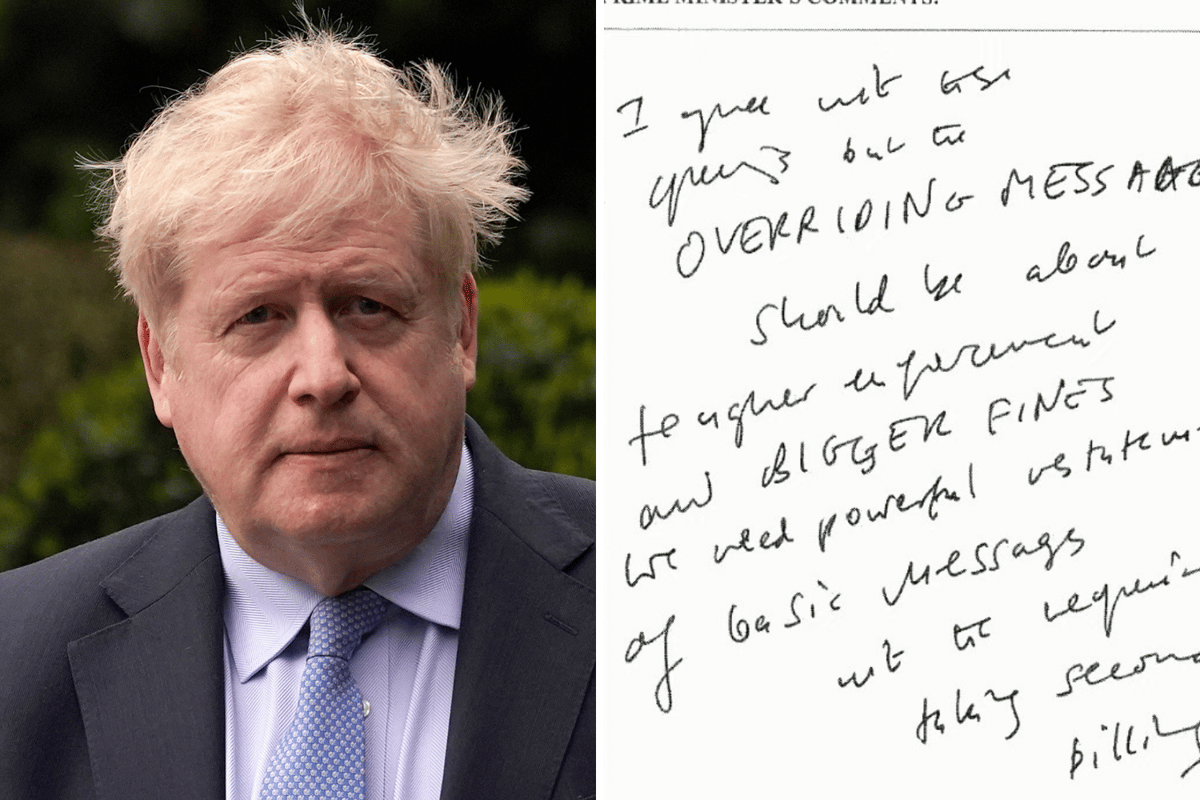 PRIME MINISTER'S COMMENTS:
I agree with the
but the
OVERRIDING MESSAGE
should be about
tougher enforcement
and BIGGER FINES
We need powerful restatement
of basic message
with the
taking second
billing